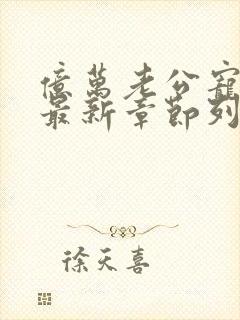 億萬老公寵
最新章節列
徐天喜